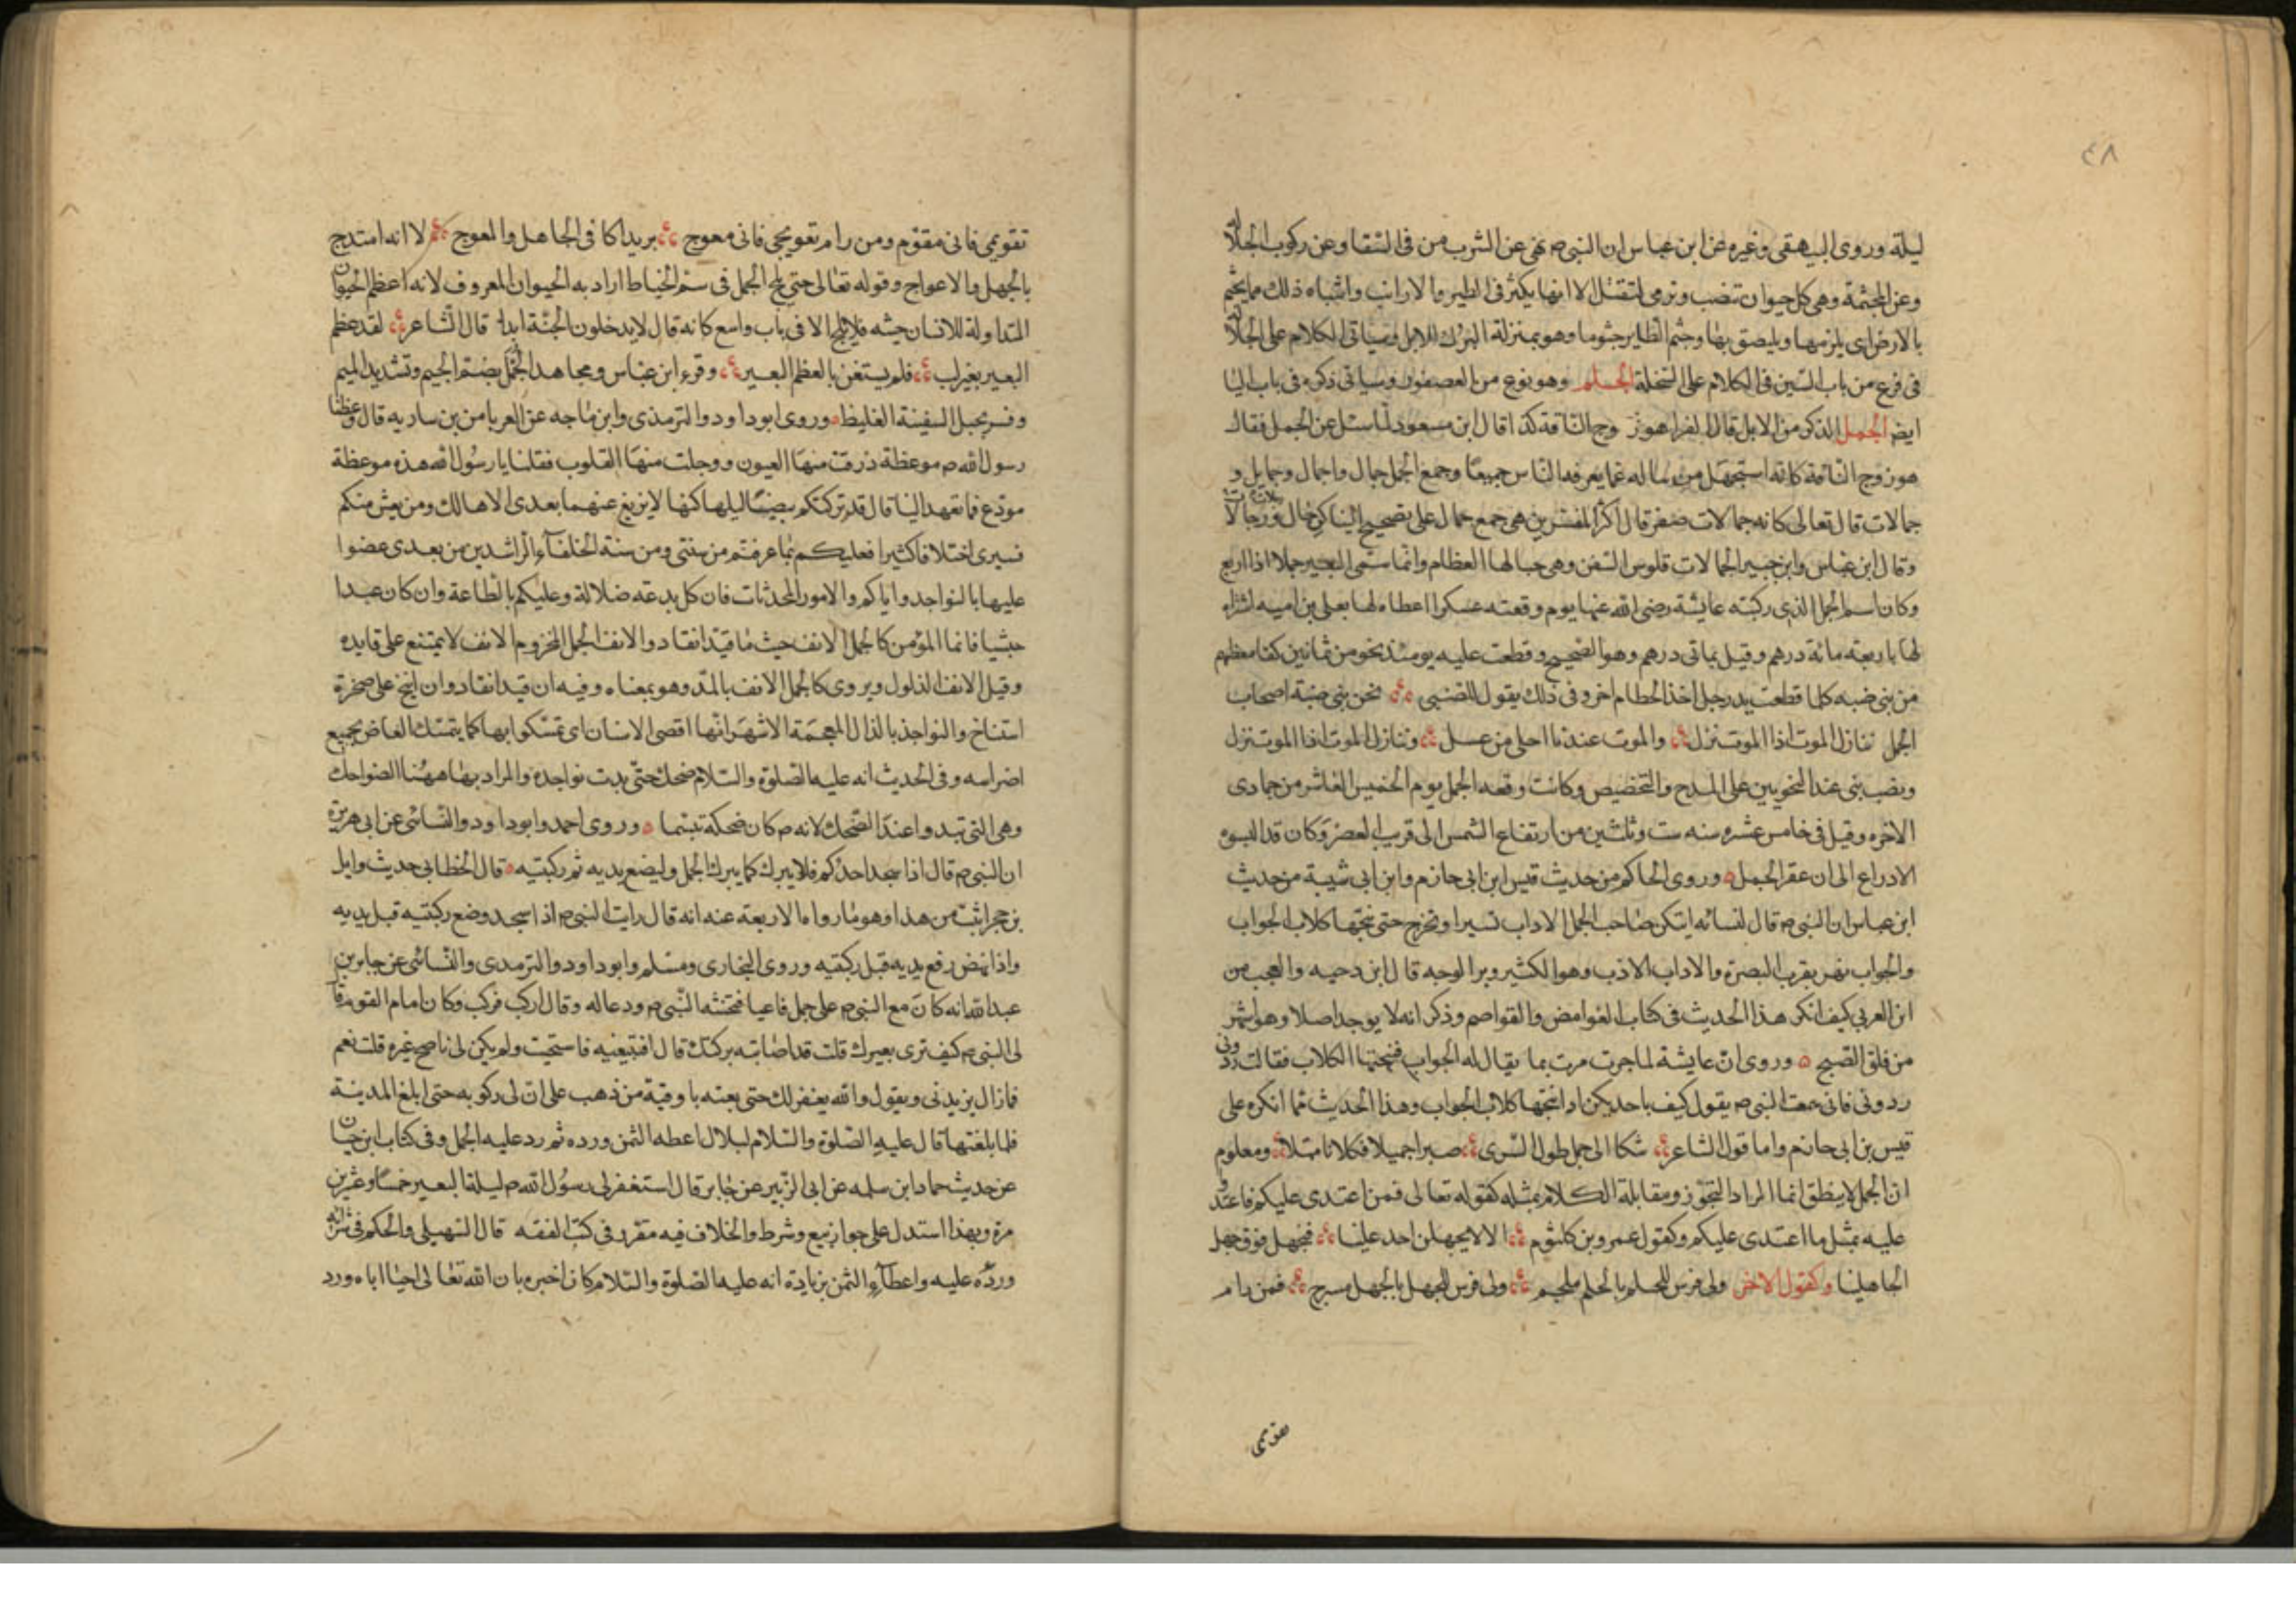 ٤٨
ليلة وروى البيهقى وغيره عن ابن عباس ان النبى ص نهى عن الشرب من فى السقا وعن ركوب الجلالة
وعن المجثمة وهى كل حيوان تنصب وترمى لتقتل الا انها يكثر فى الطير والارانب واشباه ذلك مما يجثم
بالارض اى يلزمها ويلصق بها وجثم الطاير جثوما وهو بمنزلة البرك للابل وسياتى الكلام على الجلالة
فى فرع من باب السين فى الكلام على السخلة الجلم وهو نوع من العصفور وسياتى ذكره فى باب اليا
ايض الجمل الذكر من الابل قال الفرا هو زوج الناقة كذا قال ابن مسعود لما سئل عن الجمل فقال
هو زوج الناقة كانه استجهل من ساله عما يعرفه الناس جميعا وجمع الجمل جمال واجمال وجمايل و
جمالات قال تعالى كانه جمالات صفر قال اكثر المفسرين هى جمع جمال على تصحيح البنا كرجال ورجالات
وقال ابن عباس وابن جبير الجمالات قلوس السفن وهى حبالها العظام وانما سمى البعير جملا اذا اربع
وكان اسم الجمل الذى ركبته عايشة رضى الله عنها يوم وقعته عسكرا اعطاه لها يعلى بن اميه اشتراه
لها باربعة مائة درهم وقيل بماتى درهم وهو الصحيح وقطعت عليه يومئذ نحو من ثمانين كفا معظمهم
من بنى ضبه كلما قطعت يد رجل اخذ الخطام اخر وفى ذلك يقول الضبى نحن بنى ضبة اصحاب
الجمل ننازل الموت اذا الموت نزل والموت عندنا احلى من عسل وننازل الموت اذا الموت نزل
ونصب بنى عند النحويين على المدح والتخصيص وكانت وقعه الجمل يوم الخميس العاشر من جمادى
الاخره وقيل فى خامس عشره سنه ست وثلثين من ارتفاع الشمس الى قريب العصر وكان قد البسوه
الادراع الى ان عقر الجمل وروى الحاكم من حديث قيس ابن ابى حازم وابن ابى شيبة من حديث
ابن عباس ان النبى ص قال لنسائه ايتكن صاحب الجمل الاداب تسير او تخرج حتى تنبحها كلاب الجواب
والجواب نهر بقرب البصرة والاداب الادب وهو الكثير وبر الوجه قال ابن دحيه والعجب من
ابن العربى كيف انكر هذا الحديث فى كتاب الغوامض والقواصم وذكر انه لا يوجد اصلا وهو اشهر
من فلق الصبح وروى ان عايشة لما جرت مرت بما يقال له الجواب فنبحتها الكلاب فقالت ردونى
ردونى فانى سمعت النبى ص يقول كيف باحديكن اذا نبحتها كلاب الجواب وهذا الحديث مما انكره على
قيس بن ابى حازم واما قول الشاعر شكا الى جملى طول السرى صبرا جميلا فكلانا مبتلا ومعلوم
ان الجمل لا ينطق انما المراد التجوز ومقابلة الكلام بمثله كقوله تعالى فمن اعتدى عليكم فاعتدوا
عليه بمثل ما اعتدى عليكم وكقول عمرو بن كلثوم الا لا يجهلن احد علينا فنجهل فوق جهل
الجاهلينا وكقول الاخر ولى فرس للحلم بالحلم ملجم ولى فرس للجهل بالجهل مسرج فمن رام
تقويمى فانى مقوم ومن رام تعويجى فانى معوج يريد اكافى الجاهل والمعوج لا انه امتدح
بالجهل والاعوجاج وقوله تعالى حتى يلج الجمل فى سم الخياط اراد به الحيوان المعروف لانه اعظم الحيوان
المتداولة للانسان جثه فلا يلج الا فى باب واسع كانه قال لا يدخلون الجنة ابدا قال الشاعر لقد عظم
البعير بغير لب فلم يستغن بالعظم البعير وقرء ابن عباس ومجاهد الجمل بضم الجيم وتشديد الميم
وفسر بحبل السفينة الغليظ وروى ابو داود والترمذى وابن ماجه عن العرباض بن ساريه قال وعظنا
رسول الله ص موعظة ذرفت منها العيون ووجلت منها القلوب فقلنا يا رسول الله هذه موعظة
مودع فما تعهد الينا قال قد تركتكم بيضا ليلها كنها لا يزيغ عنهما بعدى الا هالك ومن يعش منكم
فسيرى اختلافا كثيرا فعليكم بما عرفتم من سنتى ومن سنة الخلفآء الراشدين من بعدى عضوا
عليها بالنواجد واياكم والامور المحدثات فان كل بدعه ضلالة وعليكم بالطاعة وان كان عبدا
حبشيا فانما المؤمن كالجمل الانف حيث ما قيد انقاد والانف الجمل المخزوم الانف لا يمتنع على قايده
وقيل الانف الذلول ويروى كالجمل الانف بالمد وهو بمعناه وفيه ان قيد انقاد وان انيخ على صخرة
استناخ والنواجذ بالذال المعجمة الاشهر انها اقصى الاسنان اى تمسكوا بها كما يتمسك العاض بجميع
اضراسه وفى الحديث انه عليه الصلوة والسلام ضحك حتى بدت نواجده والمراد بها ههنا الضواحك
وهى التى تبدو عند الضحك لانه ص كان ضحكه تبسما وروى احمد وابو داود والنسائى عن ابى هريرة
ان النبى ص قال اذا سجد احدكم فلا يبرك كما يبرك الجمل وليضع يديه ثم ركبتيه قال الخطابى حديث وايل
بن حجر اثبت من هذا وهو ما رواه الاربعة عنه انه قال رايت النبى ص اذا سجد وضع ركبتيه قبل يديه
واذا نهض رفع يديه قبل ركبتيه وروى البخارى ومسلم وابو داود والترمدى والنسائى عن جابر بن
عبد الله انه كان مع النبى ص على جمل فاعيا فنخسه النبى ص ودعا له وقال اركب فركب وكان امام القوم قال
لى النبى ص كيف ترى بعيرك قلت قد اصابته بركتك قال افتبيعنيه فاستحيت ولم يكن لى ناضح غيره قلت نعم
فمازال يزيدنى ويقول والله يغفر لك حتى بعته باوقية من ذهب على ان لى ركوبه حتى ابلغ المدينة
فلما بلغتها قال عليه الصلوة والسلام لبلال اعطه الثمن ورده ثم رد عليه الجمل وفى كتاب ابن حبان
عن حديث حماد ابن سلمه عن ابى الزبير عن جابر قال استغفر لى رسول الله ص ليلة البعير خمسا وعشرين
مرة وبهذا استدل على جواز بيع وشرط والخلاف فيه مقرر فى كتب الفقه قال السهيلى والحكم فى شرائه
ورده عليه واعطآء الثمن بزيادة انه عليه الصلوة والسلام كان اخبره بان الله تعالى احيا اباه ورد